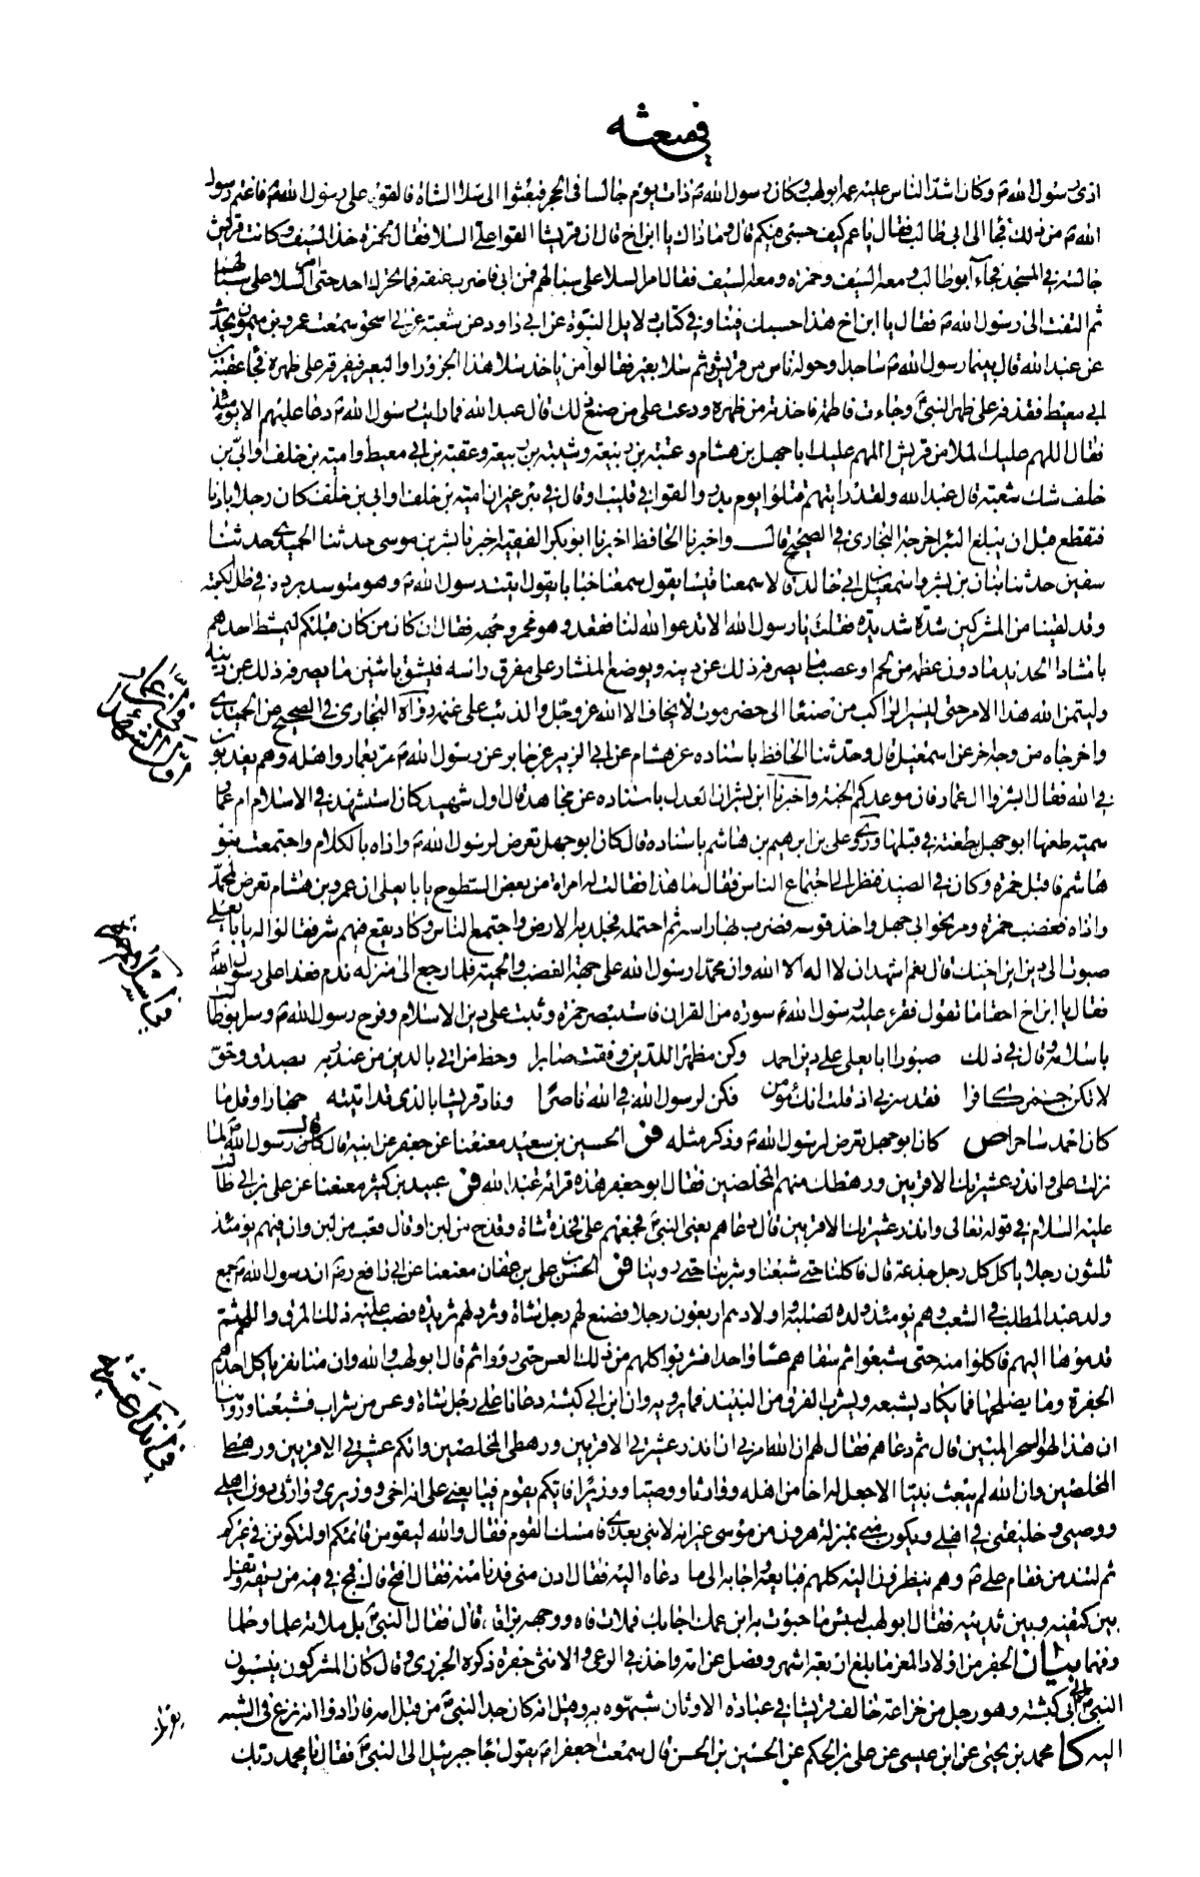 في مبعثه
اذى رسول الله ص وكان اشد الناس عليه عمه ابولهب وكان رسول الله ص ذات يوم جالسا في الحجر فبعثوا الى سلا الشاة فالقوه على رسول الله ص فاغتم رسول
الله ص من ذلك فجاء الى ابي طالب فقال يا عم كيف حسبي فيكم قال وما ذاك يا ابن اخ قال ان قريشا القوا علي السلا فقال لحمزة خذ السيف وكانت قريش
جالسة في المسجد فجاء ابو طالب ومعه السيف وحمزة ومعه السيف فقال امر السلا على سبالهم فمن ابى فاضرب عنقه فما تحرك احد حتى امر السلا على سبالهم
ثم التفت الى رسول الله ص فقال يا ابن اخ هذا حسبك فينا وفي كتاب دلايل النبوة عن ابي داود عن شعبة عن ابي اسحق سمعت عمرو بن ميمون يحدث
عن عبد الله قال بينما رسول الله ص ساجد وحوله ناس من قريش وثم سلا بعير فقالوا من ياخذ سلا هذا الجزور او البعير فيفرقه على ظهره فجاء عقبة بن
ابي معيط فقذفه على ظهر النبي ص وجاءت فاطمة فاخذته من ظهره ودعت على من صنع ذلك قال عبد الله فما رايت رسول الله ص دعا عليهم الا يومئذ
فقال اللهم عليك الملا من قريش اللهم عليك ابا جهل بن هشام وعتبة بن ربيعة وشيبة بن ربيعة وعقبة بن ابي معيط وامية بن خلف او ابي بن
خلف شك شعبة قال عبد الله ولقد رايتهم قتلوا يوم بدر والقوا في قليب او قال في بئر غير ان امية بن خلف او ابي بن خلف كان رجلا بادنا
فتقطع قبل ان يبلغ البئر اخرجه البخاري في الصحيح قال واخبرنا الحافظ اخبرنا ابو بكر الفقيه اخبرنا بشر بن موسى حدثنا الحميدي حدثنا
سفين حدثنا بنان بن بشر واسمعيل بن ابي خالد قالا سمعنا قيسا يقول سمعنا خبابا يقول اتيت رسول الله ص وهو متوسد برده في ظل الكعبة
وقد لقينا من المشركين شدة شديدة فقلت يا رسول الله الا تدعو الله لنا فقعد وهو محمر وجهه فقال ان كان من كان قبلكم ليمشط احدهم
بامشاط الحديد ما دون عظمه من لحم او عصب ما يصرفه ذلك عن دينه ويوضع المنشار على مفرق راسه فيشق باثنين ما يصرفه ذلك عن دينه
وليتمن الله هذا الامر حتى يسير الراكب من صنعا الى حضرموت لا يخاف الا الله عز وجل والذئب على غنمه رواه البخاري في الصحيح عن الحميدي
واخرجاه من وجه اخر عن اسمعيل قال وحدثنا الحافظ باسناده عن هشام عن ابي الزبير عن جابر عن رسول الله ص مر بعمار واهله وهم يعذبون
في الله فقال ابشروا ال عمار فان موعدكم الجنة واخبرنا ابن بشران العدل باسناده عن مجاهد قال اول شهيد كان استشهد في الاسلام ام عمار
سمية طعنها ابو جهل بطعنة في قبلها وروى علي بن ابرهيم بن هاشم باسناده قال كان ابو جهل تعرض لرسول الله ص واذاه بالكلام واجتمعت بنو
هاشم فاقبل حمزة وكان في الصيد فنظر الى اجتماع الناس فقال ما هذا فقالت له امراة من بعض السطوح يا با يعلى ان عمرو بن هشام تعرض لمحمد
واذاه فغضب حمزة ومر نحو ابي جهل واخذ قوسه فضرب بها راسه ثم احتمله فجلد به الارض واجتمع الناس وكاد يقع فيهم شر فقالوا له يا با يعلى
صبوت الى دين ابن اخيك قال نعم اشهد ان لا اله الا الله وان محمدا رسول الله على جهة الغضب والحمية فلما رجع الى منزله ندم فغدا على رسول الله ص
فقال يا ابن اخ احقا ما تقول فقرء عليه رسول الله ص سورة من القران فاستبصر حمزة وثبت على دين الاسلام وفرح رسول الله ص وسر ابو طالب
باسلامه وقال في ذلك صبورا ابا يعلى على دين احمد وكن مظهرا للدين وفقت صابرا وحط من اتى بالدين من عند ربه بصدق وحق
لا تكن حمز كافرا فقد سرني اذ قلت انك مؤمن فكن لرسول الله في الله ناصرا وناد قريشا بالذي قد اتيته جهارا وقل ما
كان احمد ساحرا ص كان ابو جهل تعرض لرسول الله ص وذكر مثله فر الحسين بن سعيد معنعنا عن جعفر عن ابيه قال قال رسول الله ص لما
نزلت علي وانذر عشيرتك الاقربين ورهطك منهم المخلصين فقال ابو جعفر هذه قرائة عبد الله فر عبيد بن كثير معنعنا عن علي بن ابي طالب
عليه السلام في قوله تعالى وانذر عشيرتك الاقربين قال دعاهم يعني النبي ص فجمعهم على فخذة شاة وقدح من لبن او قال قعب من لبن وان فيهم يومئذ
ثلثون رجلا ياكل كل رجل جذعة قال فاكلنا حتى شبعنا وشربنا حتى روينا فر الحسن بن علي بن عفان معنعنا عن ابي رافع رض ان رسول الله ص جمع
ولد عبد المطلب في الشعب وهم يومئذ ولده لصلبه واولادهم اربعون رجلا فصنع لهم رجل شاة وثرد لهم ثريدة وصب عليه ذلك المرق واللحم ثم
قدموها اليهم فاكلوا منه حتى شبعوا ثم سقاهم عسا واحدا فشربوا كلهم من ذلك العس حتى رووا ثم قال ابو لهب والله وان منا نفرا ياكل احدهم
الجفرة وما يصلحها فما يكاد يشبعه ويشرب الفرق من النبيذ فما يرويه وان ابن ابي كبشة دعانا على رجل شاة وعس من شراب فشبعنا وروينا
ان هذا لهو السحر المبين قال ثم دعاهم فقال لهم ان الله امرني ان انذر عشيرتي الاقربين ورهطي المخلصين وانكم عشيرتي الاقربين ورهطي
المخلصين وان الله لم يبعث نبيا الا جعل له اخا من اهله ووارثا ووصيا ووزيرا فايكم يقوم فيبايعني على انه اخي ووزيري ووارثي دون اهلي
ووصيي وخليفتي في اهلي ويكون مني بمنزلة هرون من موسى غير انه لا نبي بعدي فامسك القوم فقال والله ليقومن قائمكم او لتكونن في غيركم
ثم لتندمن فقام علي ع وهم ينظرون اليه كلهم فبايعه واجابه الى ما دعاه اليه فقال ادن مني فدنا منه فقال افتح فاك فمج في فيه من ريقه وتفل
بين كتفيه وبين ثدييه فقال ابو لهب لبئس ما حبوت به ابن عمك اجابك فملات فاه ووجهه بزاقا قال فقال النبي ص بل ملاته علما وحلما
وفهما بيان الجفر من اولاد المعز ما بلغ اربعة اشهر وفصل عن امه واخذ في الرعي والانثى جفرة ذكره الجزري وقال كان المشركون ينسبون
النبي ص الى ابي كبشة وهو رجل من خزاعة خالف قريشا في عبادة الاوثان شبهوه به وقيل انه كان جد النبي ص من قبل امه فارادوا انه نزع في الشبه
اليه كا محمد بن يحيى عن ابن عيسى عن علي بن الحكم عن الحسين بن ابي الحسن قال سمعت جعفرا ع يقول جاء جبرئيل الى النبي ص فقال يا محمد ربك
في اسلام حمزة
في انذار عشيرته
يقرئك